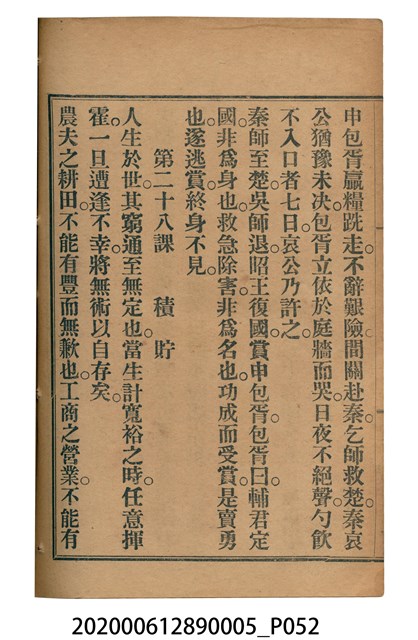 申包胥贏糧跣走。不辭艱險間關赴秦。乞師救楚。秦哀
公猶豫未决。包胥立依於庭牆而哭。日夜不絕聲。勺飮
不入口者七日。哀公乃許之。
秦師至楚。吳師退。昭王復國。賞申包胥。包胥曰。輔君定
國。非爲身也。救急除害。非爲名也。功成而受賞。是賣勇
也。遂逃賞。終身不見。
第二十八課　積貯
人生於世。其窮通至無定也。當生計寬裕之時。任意揮
霍。一旦遭逢不幸。將無術以自存矣。
農夫之耕田。不能有豐而無歉也。工商之營業。不能有
202000612890005_P052